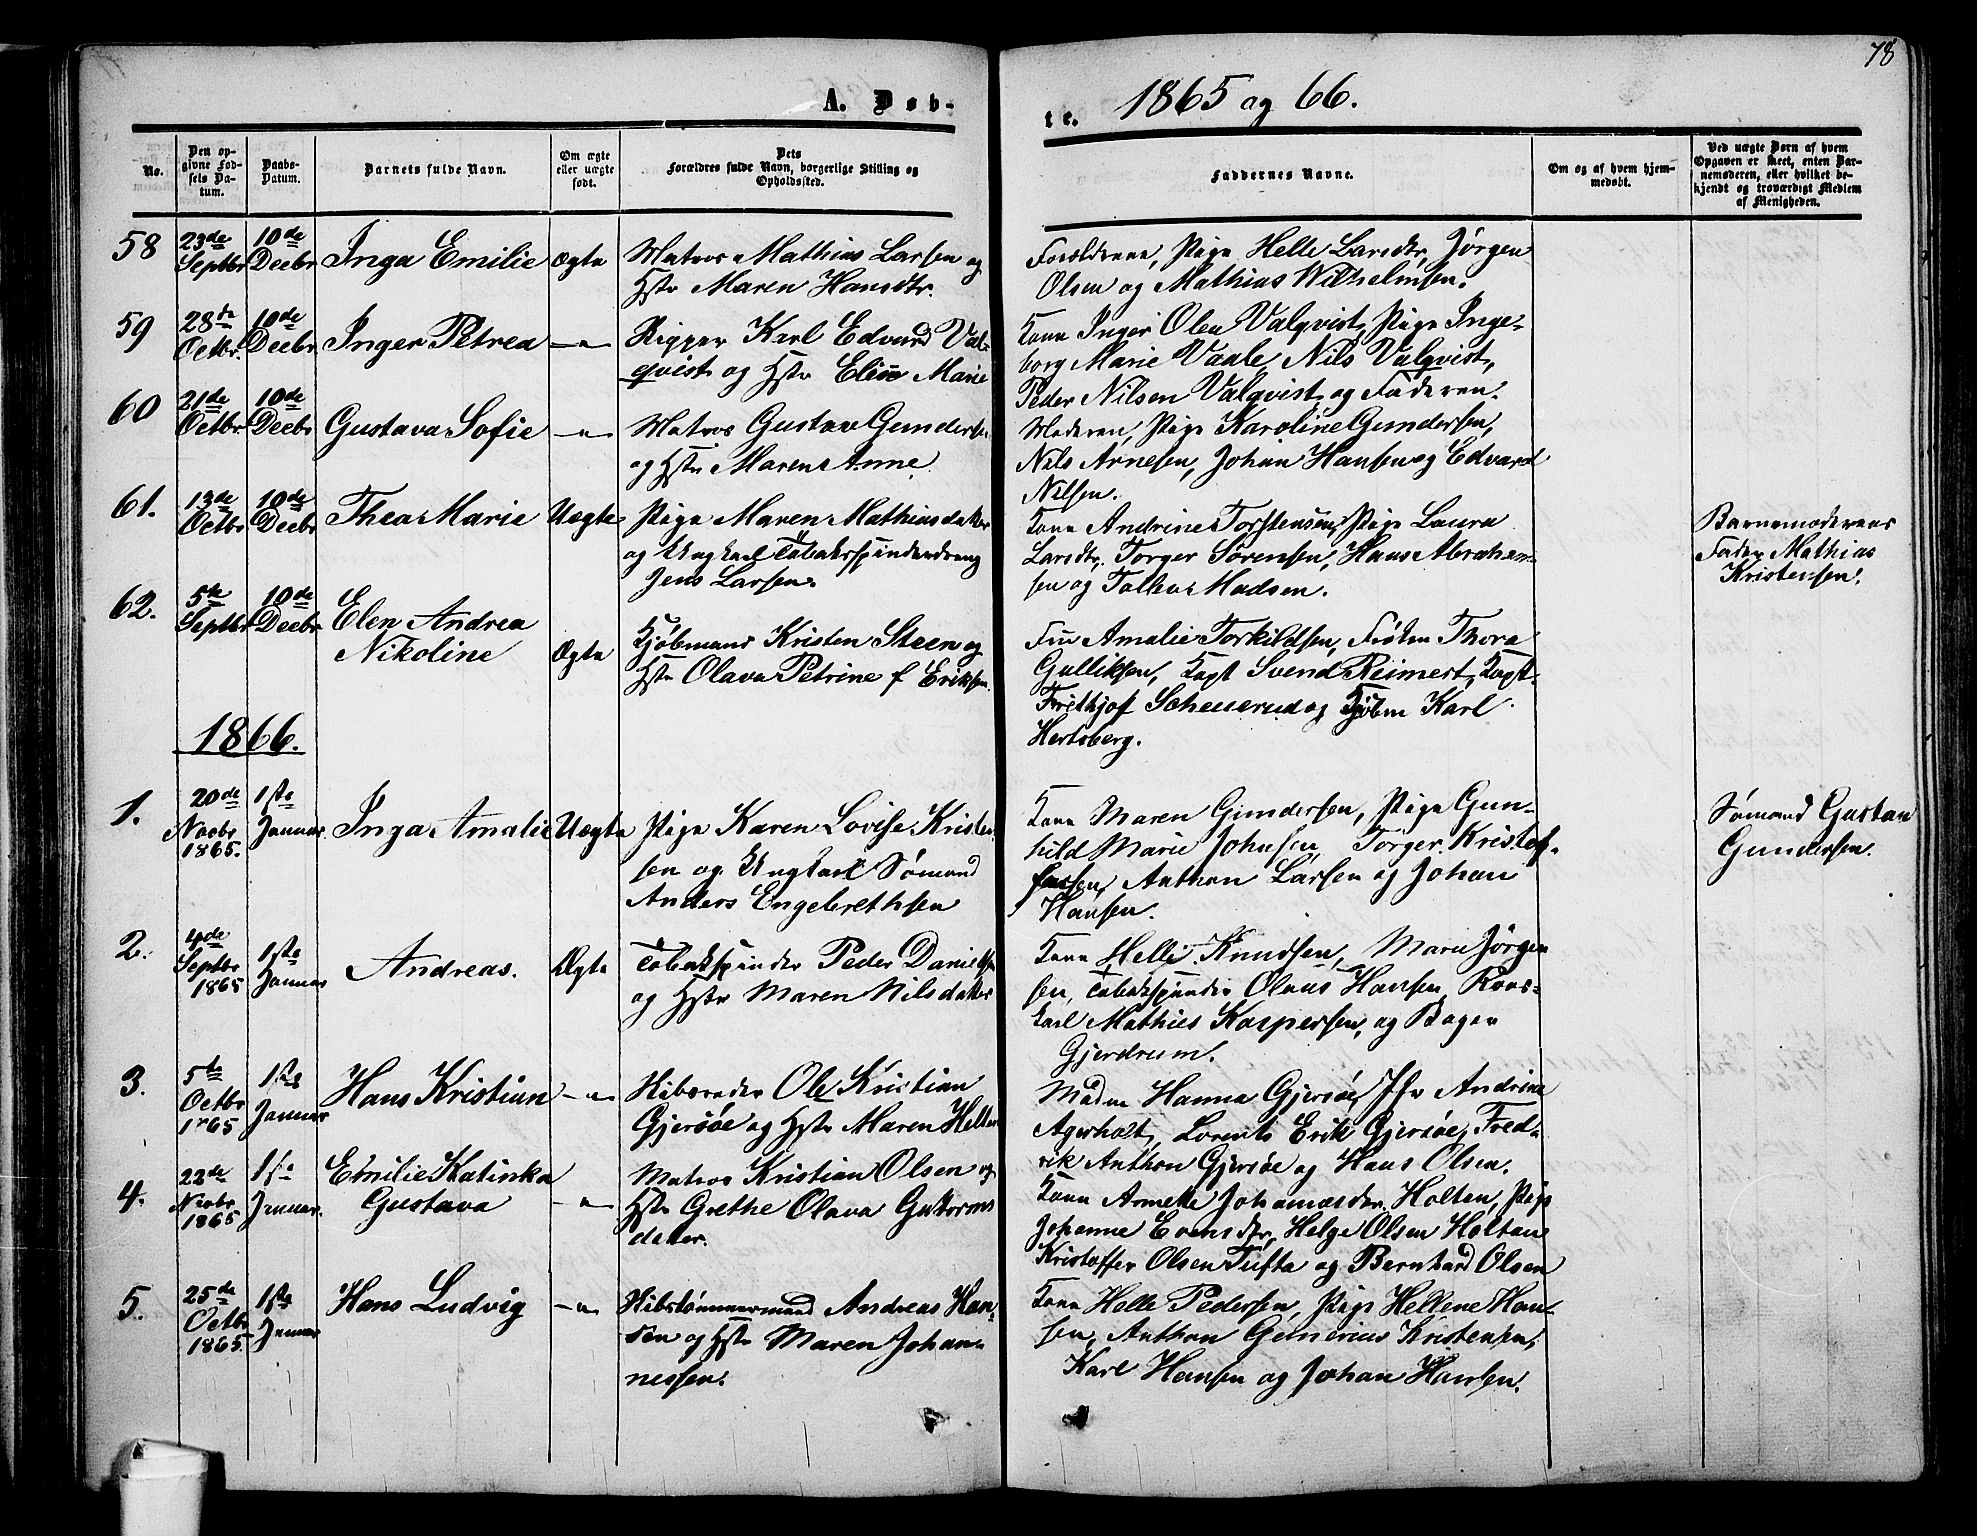 78
A. Døb-
te. 1865 og 66.
No.
Den op-
givne Fød-
sels Da-
tum.
Daabs-
Datum.
Barnets fulde Navn.
Om ægte
eller uægte
født.
Dets
Forældres fulde Navn, borgerlige Stilling og
Opholdssted.
Faddernes Navne.
Om og af hvem hjem-
medøbt.
Ved uægte Børn af hvem
Opgaven er skeet, enten Bar-
nemoderen, eller hvilket be-
kjendt og troværdigt Medlem
af Menigheden.
58
23de
Septbr
10de
Decbr
Inga Emilie
Ægte
Matros Mathias Larsen og
Hstr Maren Hansdtr.
Forældrene, Pige Helle Larsdtr, Jörgen
Olsen og Mathias Wilhelmsen.
59
28de
Octbr
10de
Decbr
Inger Petrea
—〃—
Rigger Karl Edvard Val-
qvist og Hstr Elise Marie
Kone Inger Olea Valqvist, Pige Inge-
borg Marie Vaale, Nils Valqvist,
Peder Nilsen Valqvist og Faderen.
60
21de
Octbr
10de
Decbr
Gustava Sofie
—〃—
Matros Gustav Gundersen
og Hstr Maren Anne.
Moderen, Pige Karoline Gundersen,
Nils Arnesen, Johan Hansen og Edvard
Nilsen.
61.
13de
Octbr
10de
Decbr
Thea Marie
Uægte
Pige Maren Mathiasdatter
og Ungkarl Tobaksspinderdreng
Jens Larsen.
Kone Andrine Torstensen, Pige Laura
Larsdtr, Torger Sörensen, Hans Abraham-
sen og Tollev Madsen.
Barnemoderens
Fader Mathias
Kristensen.
62.
5te
Septbr
10de
Decbr
Elen Andrea
Nikoline
Ægte
Kjöbmand Kristen Steen og
Hstr Olava Petrine f Eriksen.
Fru Amalie Torkildsen, Fröken Thora
Gulliksen, Kapt Svend Reimert, Kapt
Frithjof Scheuerud og Kjöbm Karl
Hertsberg.
1866.
1.
20de
Novbr
1865.
1ste
Januar
Inga Amalie
Uægte
Pige Karen Lovise Kristen-
sen og Ungkarl Sömand
Anders Engebrethsen
Kone Maren Gundersen, Pige Gun-
hild Marie Johnsen, Torger Kristof-
fersen, Anthon Larsen og Johan
Hansen.
Sömand Gustav
Gundersen.
2.
4de
Septbr
1865
1ste
Januar
Andreas.
Ægte
Tobakspinder Peder Danielsen
og Hstr Maren Nilsdatter
Kone Helle Knudsen, Maren Jörgen
sen, Tobakspinder Olaus Hansen, Roes-
karl Mathies Kaspersen, og Bager
Gjerdrum.
3.
5te
Octbr
1865
1ste
Januar
Hans Kristian
—〃—
Skibsreder Ole Kristian
Gjersöe og Hstr Maren Helle
Madm Hanna Gjersöe, Jfr Andrine
Agerholt, Lorents Erik Gjersöe, Fred-
rik Anthon Gjersöe og Hans Olsen.
4.
22de
Novbr
1865
1ste
Januar.
Emilie Katinka
Gustava
—〃—
Matros Kristian Olsen og
Hstr Grethe Olava Guttorms
datter.
Kone Annette Johannesdtr Holtan, Pige
Johanne Evensdtr, Helge Olsen Holtan
Kristoffer Olsen Tufta og Bernhard Olsen
5.
25de
Octbr
1865.
1ste
Januar
Hans Ludvig
—〃—
Skibstömmermand Andreas Han-
sen og Hstr Maren Johan-
nessen.
Kone Helle Pedersen, Pige Hellene Han-
sen, Anthon Gunerius Kristensen,
Karl Hansen og Johan Hansen.